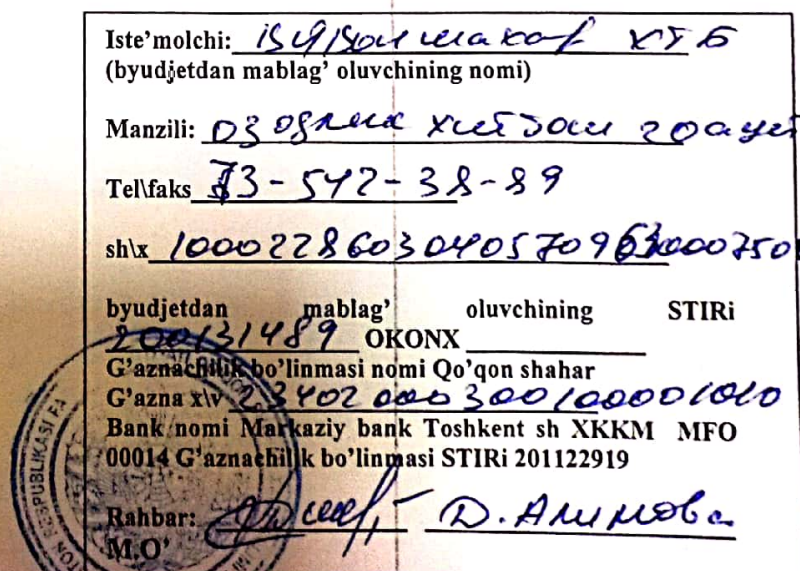 Iste'molchi: шахар ХТБ
(byudjetdan mablag' oluvchining nomi)
Manzili: Озодлик
Tel\faks 73-542-38-89
sh\x
byudjetdan mablag' oluvchining STIRi
200131489 OKONX
G'aznachilik bo'linmasi nomi Qo'qon shahar
G'azna x\v 23402000300100001010
Bank nomi Markaziy bank Toshkent sh XKKM MFO
00014 G'aznachilik bo'linmasi STIRi 201122919
Rahbar: Д. Алимова
M.O'